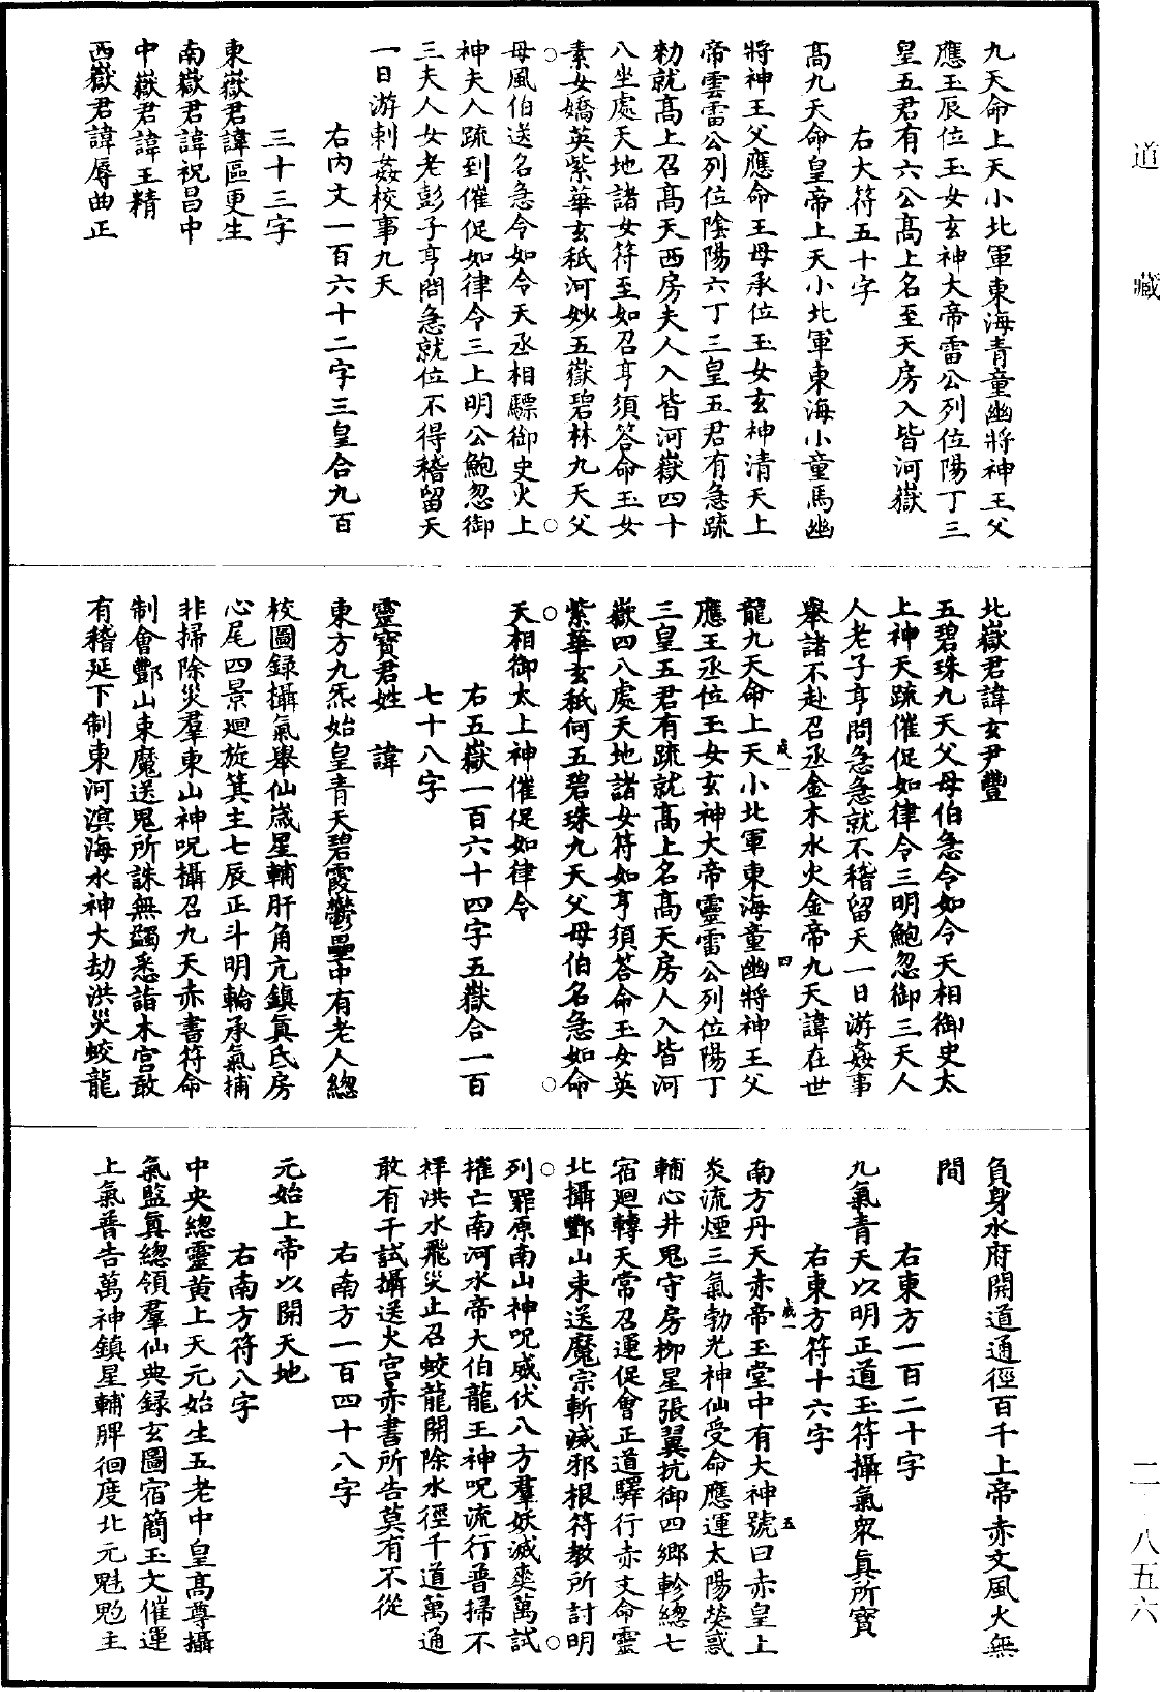 九天命上天小北軍東海青童幽將神王父
應玉辰位玉女玄神大帝雷公列位陽丁三
皇五君有六公高上名至天房入皆河嶽
右大符五十字
高九天命皇帝上天小北軍東海小童馬幽
將神王父應命王母承位玉女玄神清天上
帝雲雷公列位陰陽六丁三皇五君有急疏
勑就高上召高天西房夫人入皆河嶽四十
八坐處天地諸女符至如召亨須答命玉女
素女嬌英紫華玄秖河妙五嶽碧林九天父
母風伯送名急令如令天丞相驃御史火上
神夫入疏到催促如律令三上明公鮑忽御
三夫人女老彭子亨問急就位不得稽留天
一日游刺姦校事九天
右內文一百六十二字三皇合九百
三十三字
東嶽君諱區更生
南嶽君諱祝昌中
中嶽君諱王精
西嶽君諱辱曲正
北嶽君諱玄尹豐
五碧珠九天父母伯急令如令天相御史太
上神天疏催促如律令三明鮑忽御三天人
人老子亨問急急就不稽留天一日游姦事
舉諸不赴召丞金木水火金帝九天諱在世
龍九天命上天小北軍東海童幽將神王父
應王丞位王女玄神大帝靈雷公列位陽丁
三皇五君有疏就高上名高天房人入皆河
嶽四八處天地諸女符如亨須答命玉女英
紫華玄秖何五碧珠九天父母伯名急如命
天相御太上神催促如律令
右五嶽一百六十四字五嶽合一百
七十八字
靈寶君姓　諱
東方九炁始皇青天碧霞鬱壘中有老人總
校圖錄攝氣舉仙歲星輔肝角亢鎮真氐房
心尾四景迴旋箕主七辰正斗明輪承氣捕
非掃除災羣東山神呪攝召九天赤書符命
制會酆山束魔送鬼所誅無蠲悉詣木宮敢
有稽延下制東河溟海水神大劫洪災蛟龍
負身水府開道通徑百千上帝赤文風火無
間
右東方一百二十字
九氣青天以明正道玉符攝氣眾真所寶
右東方符十六字
南方丹天赤帝玉堂中有大神號曰赤皇上
炎流煙三氣勃光神仙受命應運太陽熒惑
輔心井鬼守房柳星張翼抗御四鄉軫總七
宿迴轉天常召運促會正道驛行赤文命靈
北攝酆山束送魔宗斬滅邪根符教所討明
列罪原南山神呪威伏八方羣妖滅爽萬試
摧亡南河水帝大伯龍王神呪流行普掃不
祥洪水飛災止召蛟龍開除水徑千道萬通
敢有干試攝送火宮赤書所告莫有不從
右南方一百四十八字
元始上帝以開天地
右南方符八字
中央總靈黃上天元始生五老中皇高尊攝
氣監真總領羣仙典錄玄圖宿簡玉文催運
上氣普告萬神鎮星輔脾徊度北元魁鬽主
道　藏
二—八五六